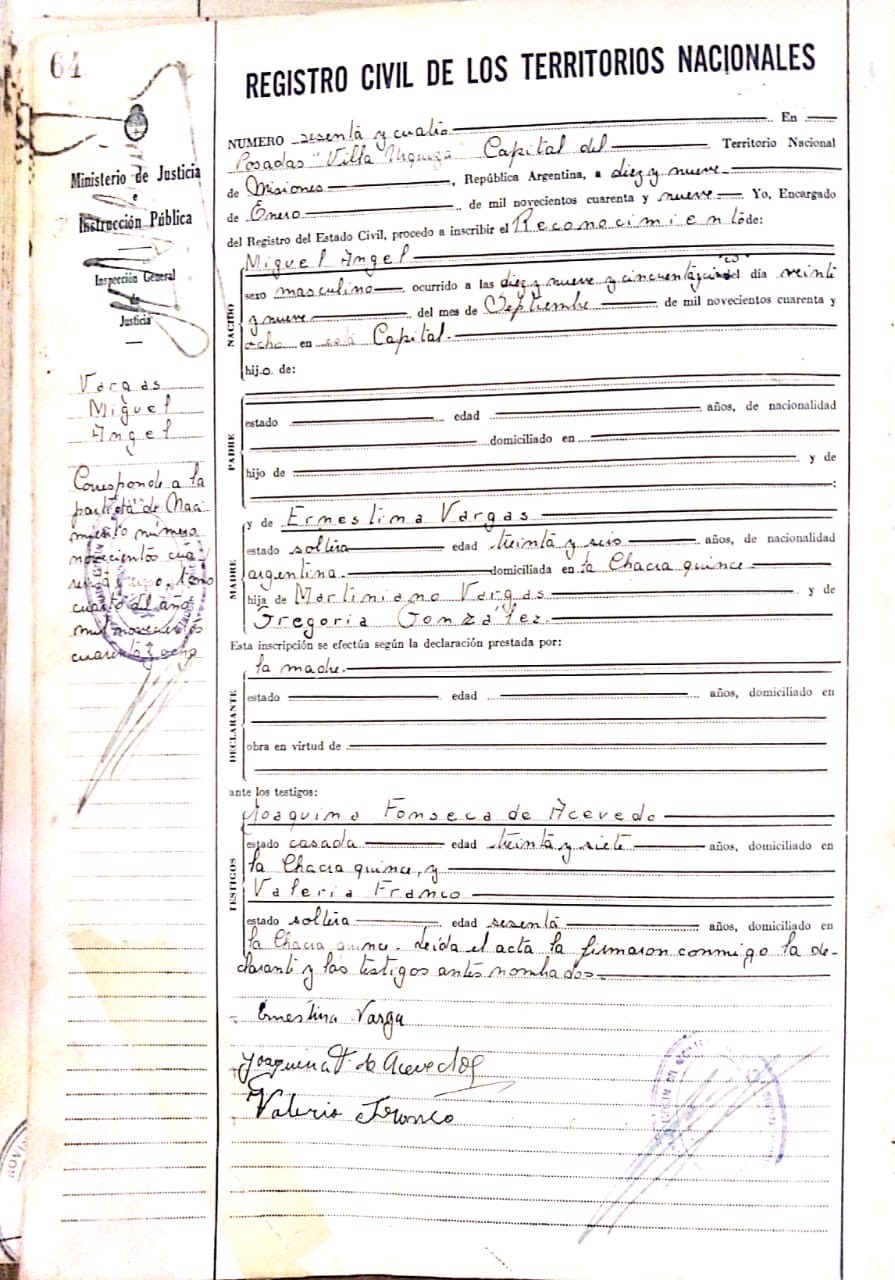 64
Ministerio de Justicia
e
Instrucción Pública
Inspección General
de
Justicia
Vargas
Miguel
Angel
Corresponde a la
partida de Naci-
miento número
novecientos cua
renta y uno, tomo
cuarto del año
mil novecientos
cuarenta y ocho
REGISTRO CIVIL DE LOS TERRITORIOS NACIONALES
NUMERO sesenta y cuatro En
Posadas "Villa Urquiza" Capital del Territorio Nacional
de Misiones, República Argentina, a diez y nueve
de Enero de mil novecientos cuarenta y nueve Yo, Encargado
del Registro del Estado Civil, procedo a inscribir el Reconocimiento de:
Miguel Angel
NACIDO
sexo masculino ocurrido a las diez y nueve y cincuenta y cinco del día veinti
y nueve del mes de Septiembre de mil novecientos cuarenta y
ocho en esta Capital.
hijo de:
PADRE
estado edad años, de nacionalidad
domiciliado en
hijo de y de
MADRE
y de Ernestina Vargas
estado soltera edad treinta y seis años, de nacionalidad
argentina. domiciliada en la Chacra quince
hija de Martiniano Vargas y de
Gregoria Gonzalez.
Esta inscripción se efectúa según la declaración prestada por:
la madre.
DECLARANTE
estado edad años, domiciliado en
obra en virtud de
ante los testigos:
TESTIGOS
Joaquina Fonseca de Acevedo
estado casada edad treinta y siete años, domiciliado en
la Chacra quince, y
Valeria Franco
estado soltera edad sesenta años, domiciliado en
la Chacra quince. Leida el acta la firmaron conmigo la de-
clarante y los testigos antes nombrados
Ernestina Varga
Joaquina F. de Acevedo
Valeria Franco